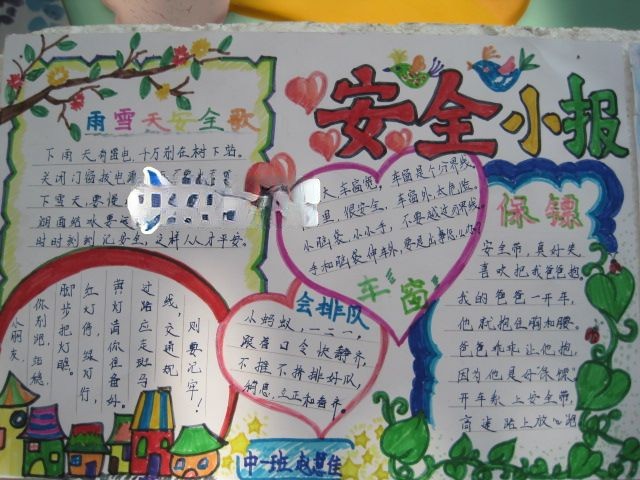 安全小报
雨雪天安全歌
下雨天有雷电,十万别在树下站。
关闭门窗拔电源
下雪天,要
时时刻刻记安全,这样人人才平安。
天,车窗宽,车窗是个分界线。
里,很安全,车窗外,太危险。
小脑袋,小小手,不要越过分界线。
手和脑袋伸车外,要是出事怎么办?
车窗
保镖
安全带,真好笑
喜欢把我爸爸抱。
我的爸爸一开车,
他就抱住胸和腰。
爸爸乖乖让他抱,
因为他是好保镖。
开车系上安全带,
高速路上放心跑
会排队
小蚂蚁,一二一,
跟着口令快静齐,
不推不挤排好队,
稍息,立正和看齐。
小朋友,
你别跑,细听
脚步把灯瞧。
红灯停,绿灯行,
黄灯请你住看好。
过路应走斑马
线,交通规
则要记牢!
中一班